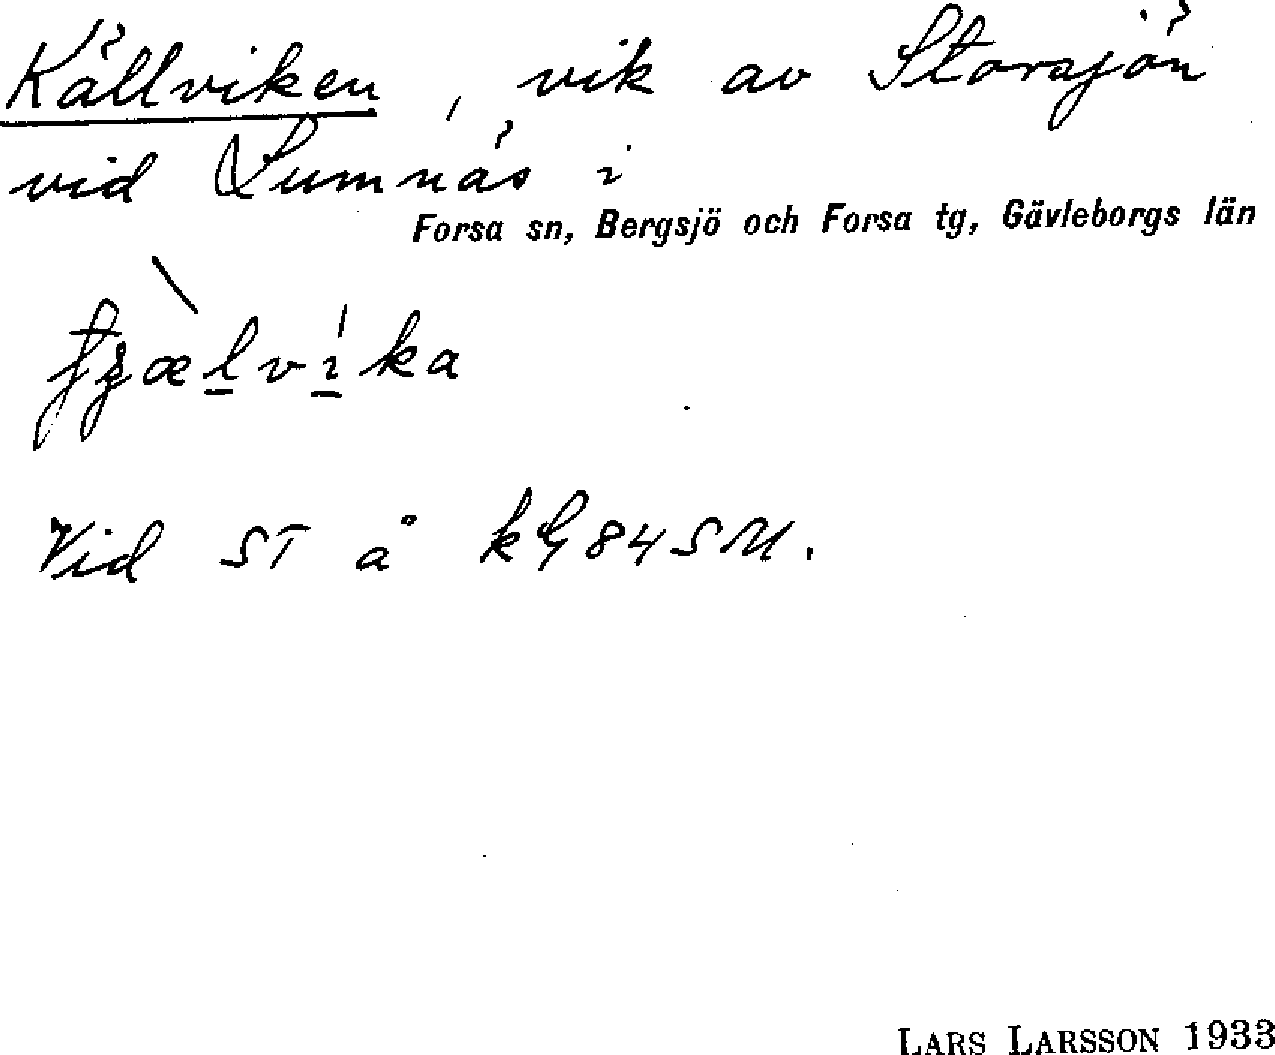 Källviken, vik av Storsjön
vid Lumnäs i
Forsa sn, Bergsjö och Forsa tg, Gävleborgs län
Vid ST å kG 84 SU.
LARS LARSSON 1933